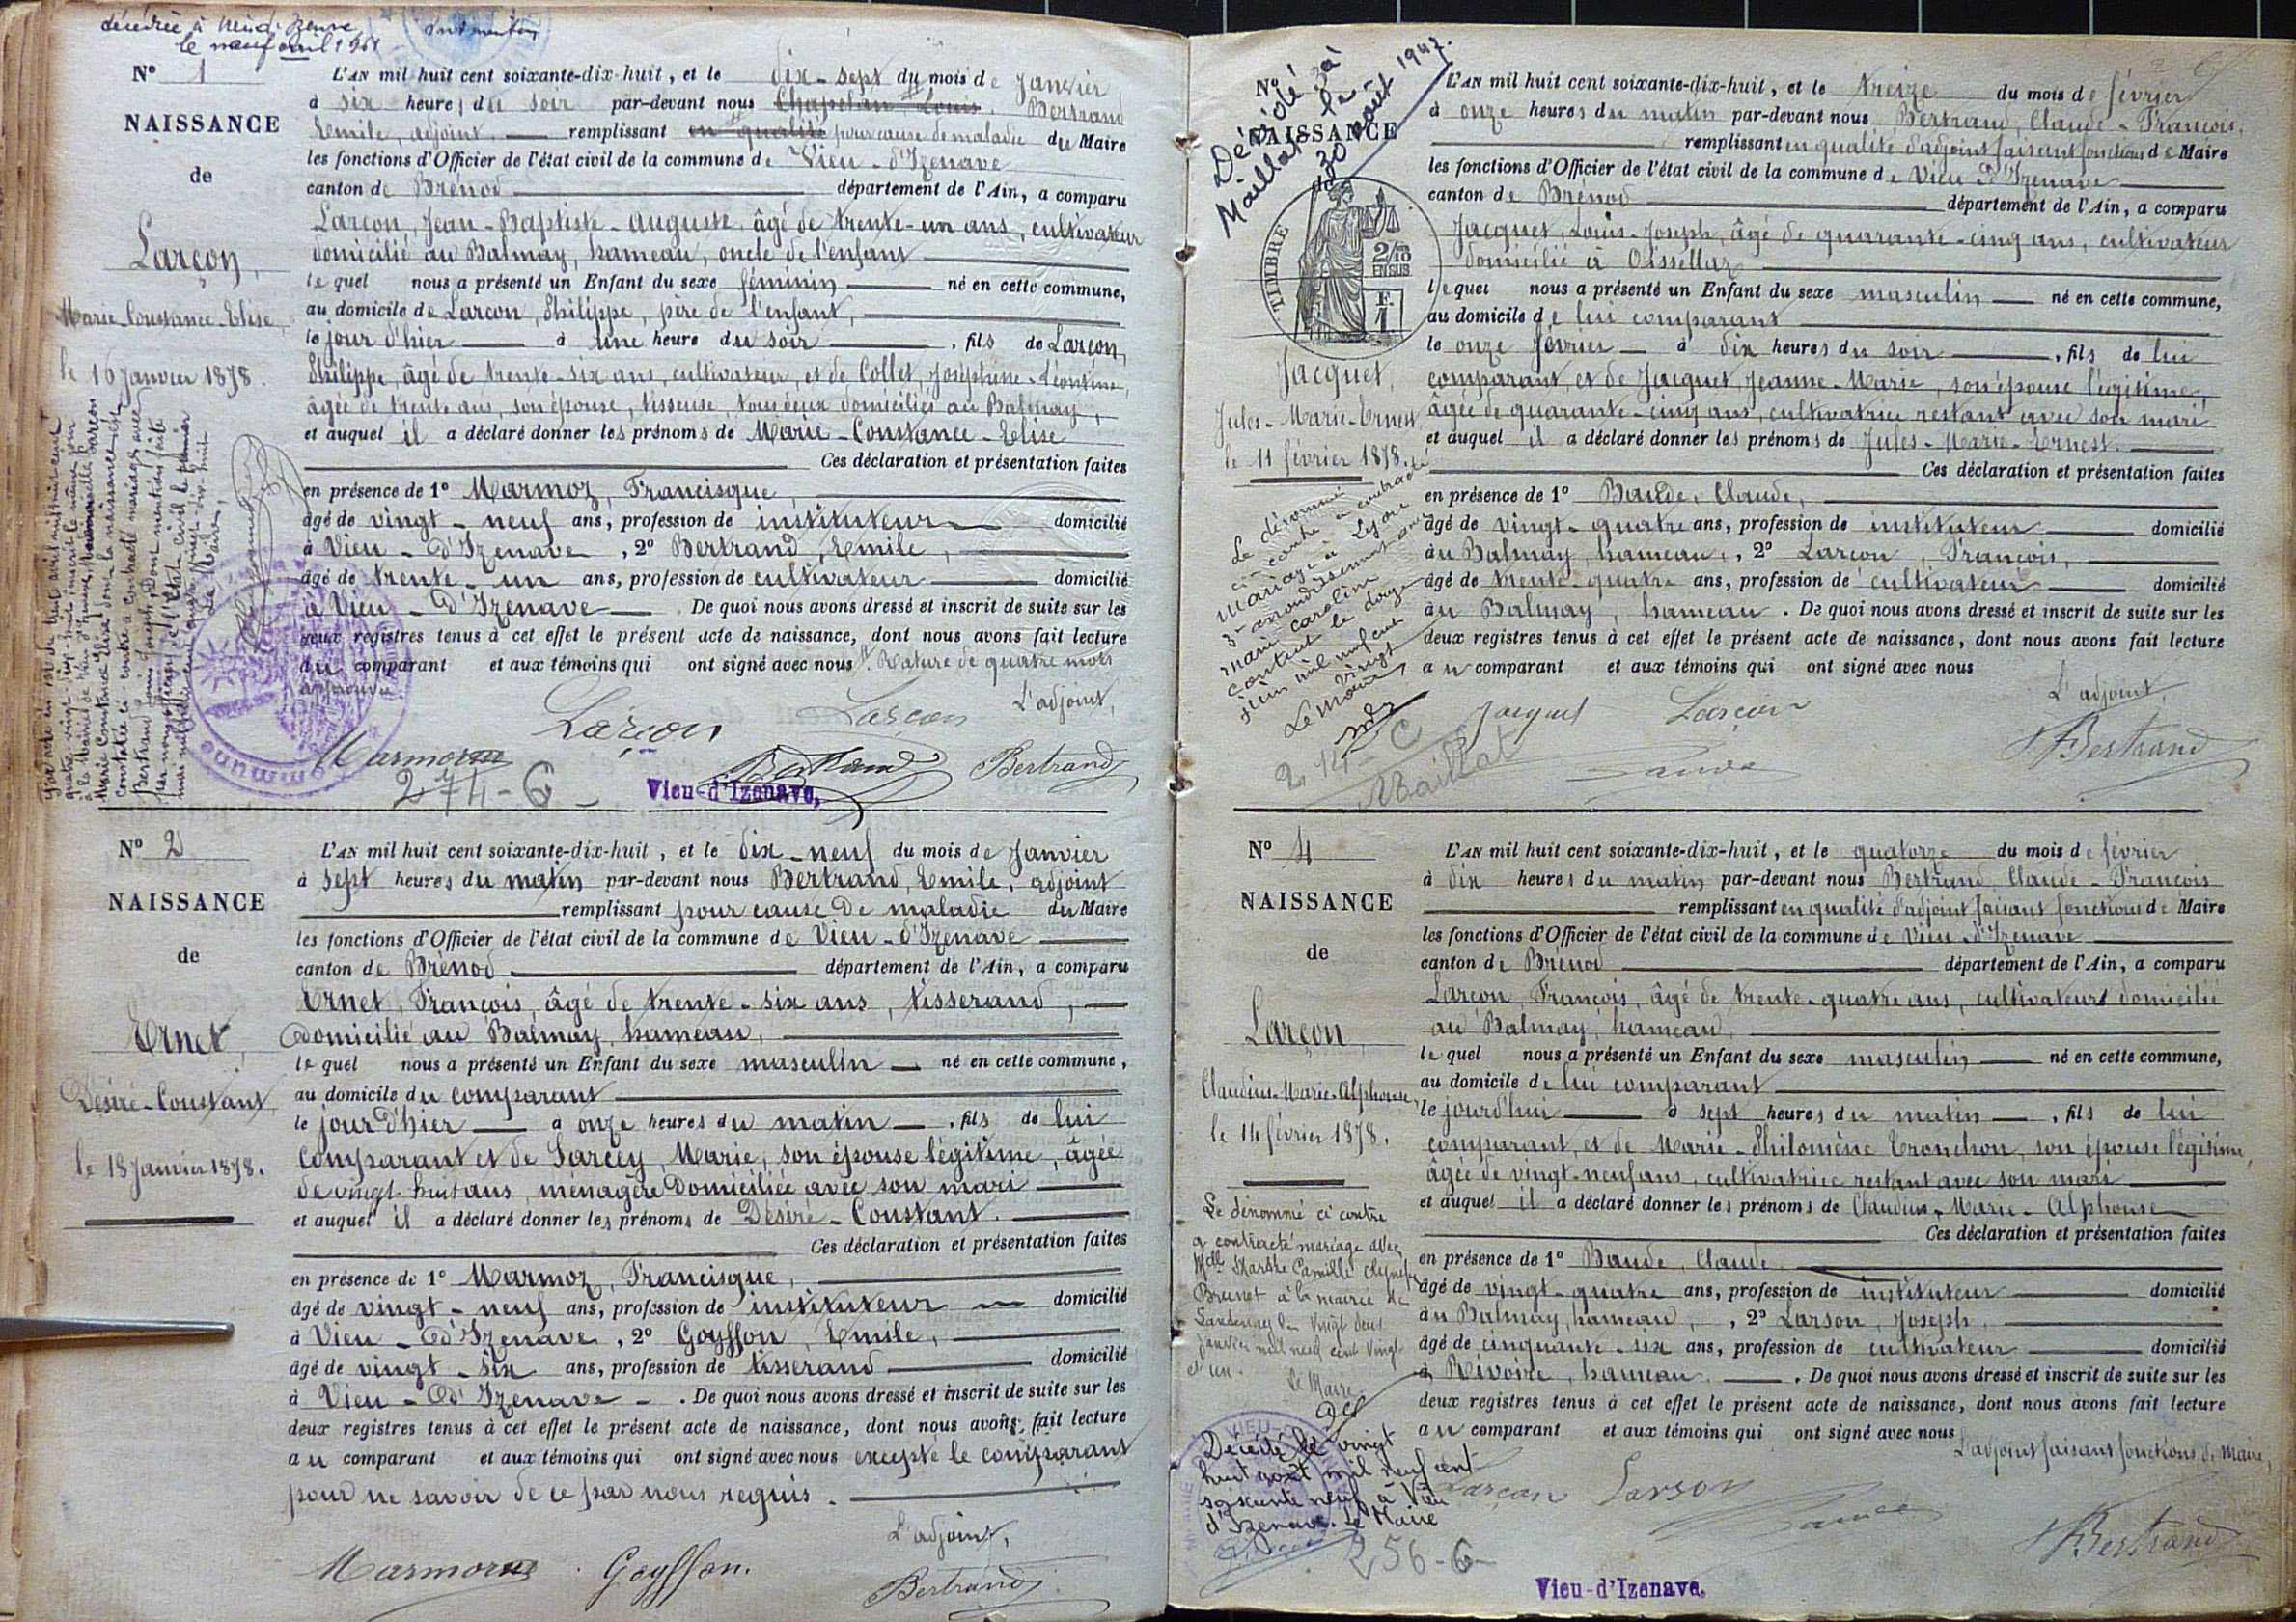 décédée à Vieu d'Izenave
le neuf avril 1961
N° 1
NAISSANCE
de
Larçon,
Marie-Constance-Elise,
le 16 janvier 1878.
L'AN mil huit cent soixante-dix-huit, et le dix-sept du mois de janvier
à six heures du soir par-devant nous Chapelan Louis. Bertrand
Emile, adjoint remplissant en qualité pour cause de maladie du Maire
les fonctions d'Officier de l'état civil de la commune de Vieu-d'Izenave
canton de Brénod département de l'Ain, a comparu
Larçon, Jean-Baptiste-Auguste, âgé de trente-un ans, cultivateur
domicilié au Balmay, hameau, oncle de l'enfant
lequel nous a présenté un Enfant du sexe féminin né en cette commune,
au domicile de Larçon, Philippe, père de l'enfant,
le jour d'hier à une heure du soir, fils de Larçon,
Philippe, âgé de trente-six ans, cultivateur, et de Collet, Joséphine-Léontine,
âgée de trente ans, son épouse, tisseuse, tous deux domiciliés au Balmay,
et auquel il a déclaré donner les prénoms de Marie-Constance-Elise
Ces déclaration et présentation faites
en présence de 1° Marmoz, Francisque,
âgé de vingt-neuf ans, profession de instituteur domicilié
à Vieu-d'Izenave, 2° Bertrand, Emile,
âgé de trente-un ans, profession de cultivateur domicilié
à Vieu-d'Izenave. De quoi nous avons dressé et inscrit de suite sur les
deux registres tenus à cet effet le présent acte de naissance, dont nous avons fait lecture
du comparant et aux témoins qui ont signé avec nous. Rature de quatre mots
approuvée.
L'adjoint,
Larçon Larçon
Marmoz Bertrand Bertrand
274-6
Vieu-d'Izenave,
N° 2
NAISSANCE
de
Ernet,
Désiré-Constant
le 18 janvier 1878.
L'AN mil huit cent soixante-dix-huit, et le dix-neuf du mois de janvier
à sept heures du matin par-devant nous Bertrand, Emile, adjoint
remplissant pour cause de maladie du Maire
les fonctions d'Officier de l'état civil de la commune de Vieu-d'Izenave
canton de Brénod département de l'Ain, a comparu
Ernet, François, âgé de trente-six ans, tisserand,
domicilié au Balmay, hameau,
lequel nous a présenté un Enfant du sexe masculin né en cette commune,
au domicile du comparant
le jour d'hier à onze heures du matin, fils de lui
comparant et de Sarcey, Marie, son épouse légitime, âgée
de vingt-huit ans, ménagère domiciliée avec son mari
et auquel il a déclaré donner les prénoms de Désiré-Constant.
Ces déclaration et présentation faites
en présence de 1° Marmoz, Francisque,
âgé de vingt-neuf ans, profession de instituteur domicilié
à Vieu-d'Izenave, 2° Goyffon, Emile,
âgé de vingt-six ans, profession de tisserand domicilié
à Vieu-d'Izenave. De quoi nous avons dressé et inscrit de suite sur les
deux registres tenus à cet effet le présent acte de naissance, dont nous avons fait lecture
au comparant et aux témoins qui ont signé avec nous excepté le comparant
pour ne savoir de ce par nous requis.
L'adjoint,
Marmoz Goyffon. Bertrand
N° 3
NAISSANCE
de
Décédé à
Maillat le
30 août 1947.
TIMBRE
2/10
EN SUS
F.
1
Jacquet,
Jules-Marie-Ernest
le 11 février 1878.
Le dénommé
ci-contre a contracté
mariage à Lyon
3e arrondissement avec
Marie Caroline
Contant le douze
juin mil neuf cent
vingt
Le Maire
L'AN mil huit cent soixante-dix-huit, et le treize du mois de février
à onze heures du matin par-devant nous Bertrand, Claude-François,
remplissant en qualité d'adjoint faisant fonctions de Maire
les fonctions d'Officier de l'état civil de la commune de Vieu d'Izenave
canton de Brénod département de l'Ain, a comparu
Jacquet, Louis-Joseph, âgé de quarante-cinq ans, cultivateur
domicilié à Oissellaz
lequel nous a présenté un Enfant du sexe masculin né en cette commune,
au domicile de lui comparant
le onze février à dix heures du soir, fils de lui
comparant, et de Jacquet, Jeanne-Marie, son épouse légitime,
âgée de quarante-cinq ans, cultivatrice restant avec son mari
et auquel il a déclaré donner les prénoms de Jules-Marie-Ernest.
Ces déclaration et présentation faites
en présence de 1° Baude, Claude,
âgé de vingt-quatre ans, profession de instituteur domicilié
au Balmay, hameau, 2° Larçon, François,
âgé de trente-quatre ans, profession de cultivateur domicilié
au Balmay, hameau. De quoi nous avons dressé et inscrit de suite sur les
deux registres tenus à cet effet le présent acte de naissance, dont nous avons fait lecture
au comparant et aux témoins qui ont signé avec nous
L'adjoint,
Jacquet Larçon
Baude Bertrand
Maillat
N° 4
NAISSANCE
de
Larçon,
Claudius-Marie-Alphonse,
le 14 février 1878.
Le dénommé ci contre
a contracté mariage avec
Brunet à la mairie de
le vingt deux
janvier mil neuf cent vingt
et un.
Le Maire
Décédé le vingt
huit août mil neuf cent
soixante neuf à Vieu
d'Izenave. Le Maire
256-6
L'AN mil huit cent soixante-dix-huit, et le quatorze du mois de février
à dix heures du matin par-devant nous Bertrand, Claude-François
remplissant en qualité d'adjoint faisant fonctions de Maire
les fonctions d'Officier de l'état civil de la commune de Vieu d'Izenave
canton de Brénod département de l'Ain, a comparu
Larçon, François, âgé de trente-quatre ans, cultivateur domicilié
au Balmay, hameau,
lequel nous a présenté un Enfant du sexe masculin né en cette commune,
au domicile de lui comparant
le jourd'hui à sept heures du matin, fils de lui
comparant, et de Marie-Philomène Tronchon, son épouse légitime,
âgée de vingt-neuf ans, cultivatrice restant avec son mari
et auquel il a déclaré donner les prénoms de Claudius-Marie-Alphonse
Ces déclaration et présentation faites
en présence de 1° Baude, Claude,
âgé de vingt-quatre ans, profession de instituteur domicilié
au Balmay, hameau, 2° Larson, Joseph,
âgé de cinquante-six ans, profession de cultivateur domicilié
à Rivoire, hameau. De quoi nous avons dressé et inscrit de suite sur les
deux registres tenus à cet effet le présent acte de naissance, dont nous avons fait lecture
au comparant et aux témoins qui ont signé avec nous
L'adjoint faisant fonctions de Maire,
Larçon Larson
Baude Bertrand
Vieu-d'Izenave.